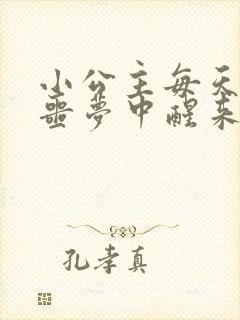 小公主每天
噩梦中醒来
孔孝真